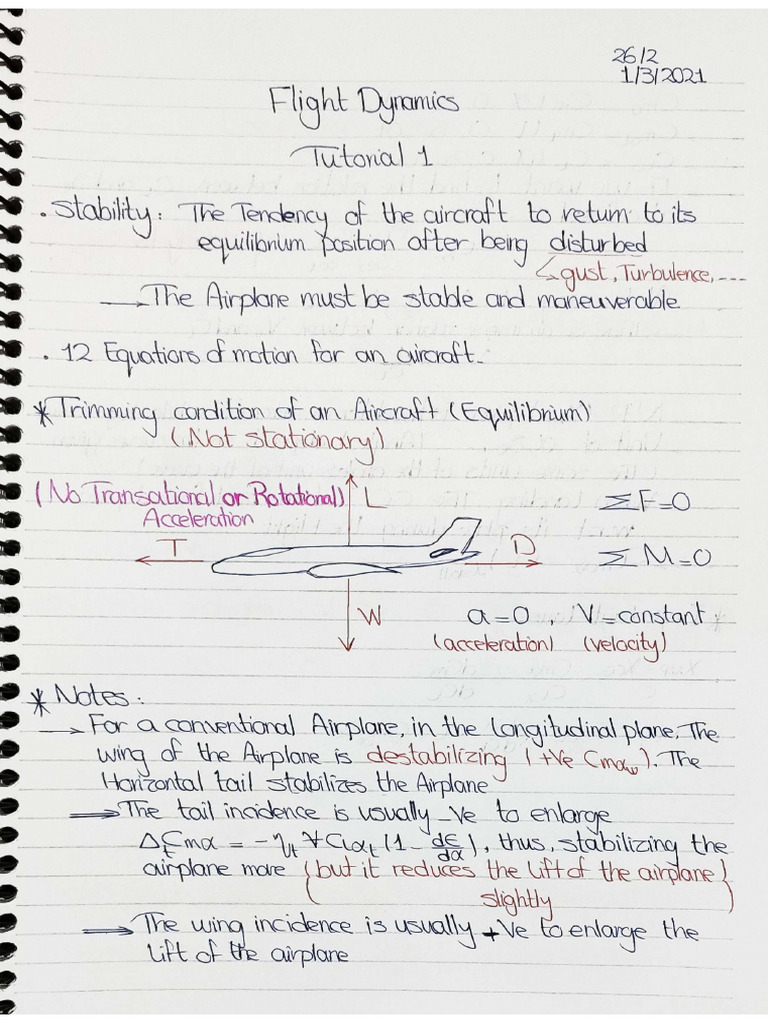 26/2
1/3/2021
Flight Dynamics
Tutorial 1
. Stability: The Tendency of the aircraft to return to its
equilibrium position after being disturbed
gust, Turbulence, ---
→ The Airplane must be stable and maneuverable
. 12 Equations of motion for an aircraft.
* Trimming condition of an Aircraft (Equilibrium)
(Not stationary)
(No Transational or Rotational)
Acceleration
L
ΣF=0
T
D
ΣM=0
W
a=0 , V=constant
(acceleration) (velocity)
* Notes:
→ For a conventional Airplane, in the Longitudinal plane, The
wing of the Airplane is destabilizing (+ve Cmαw). The
Horizontal tail stabilizes the Airplane
⇒ The tail incidence is usually -ve to enlarge
ΔtCmα = -ηt ∀ CLαt (1 - dε/dα), thus, stabilizing the
airplane more (but it reduces the lift of the airplane)
slightly
⇒ The wing incidence is usually +ve to enlarge the
lift of the airplane